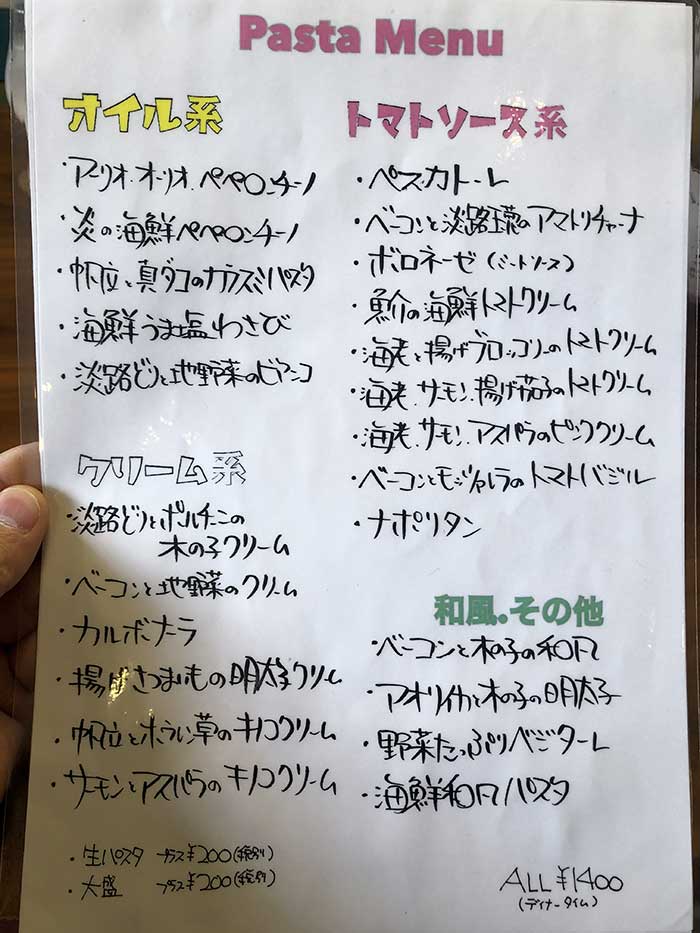 Pasta Menu
オイル系
・アーリオ.オーリオ.ペペロンチーノ
・炎の海鮮ペペロンチーノ
・帆立と真ダコのカラスミパスタ
・海鮮うま塩わさび
・淡路どりと地野菜のビアンコ
クリーム系
・淡路どりとポルチーニの
木の子クリーム
・ベーコンと地野菜のクリーム
・カルボナーラ
・揚げさつまいもの明太子クリーム
・帆立とホウレい草のキノコクリーム
・サーモンとアスパラのキノコクリーム
・生パスタ プラス¥200(税別)
・大盛 プラス¥200(税別)
トマトソース系
・ペスカトーレ
・ベーコンと淡路玉葱のアマトリチャーナ
・ボロネーゼ(ミートソース)
・魚介の海鮮トマトクリーム
・海老と揚げブロッコリーのトマトクリーム
・海老.サーモン.揚げ茄子のトマトクリーム
・海老.サーモン.アスパラのピンククリーム
・ベーコンとモッツァレラのトマトバジル
・ナポリタン
和風.その他
・ベーコンと木の子の和風
・アオリイカと木の子の明太子
・野菜たっぷりベジターレ
・海鮮和風パスタ
ALL ¥1400
(ディナータイム)